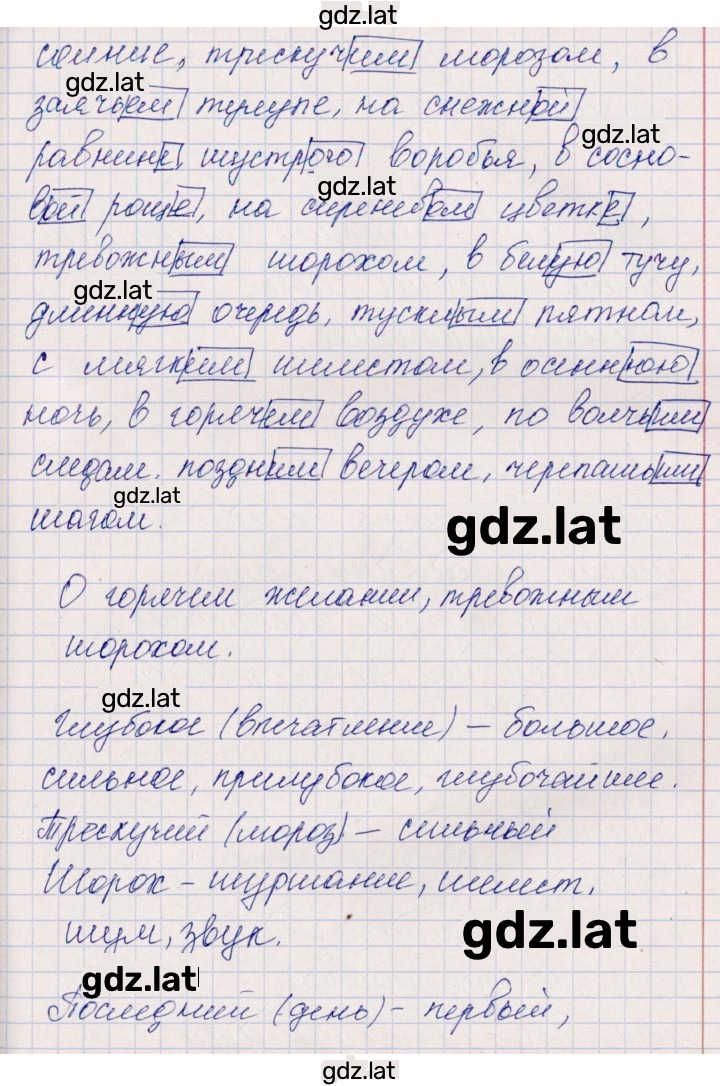 gdz.lat
сание, трескучим морозом, в
gdz.lat
заячьем тулупе, на снежной
gdz.lat
равнине, шустрого воробья, в сосно-
gdz.lat
вой роще, на сиреневом цветке,
тревожным шорохом, в белую тучу,
gdz.lat
длинную очередь, тусклым пятном,
с мягким шелестом, в осеннюю
ночь, в горячем воздухе, по волчьим
следам. поздним вечером, черепашьими
gdz.lat
шагом.
gdz.lat
О горячем желании, тревожным
шорохом.
gdz.lat
Глубокое (впечатление) – большое,
сильное, приглубокое, глубочайшее.
Трескучий (мороз) – сильный
Шорох – шуршание, шелест,
шум, звук.
gdz.lat
gdz.lat
Последний (день) – первый,
gdz.lat